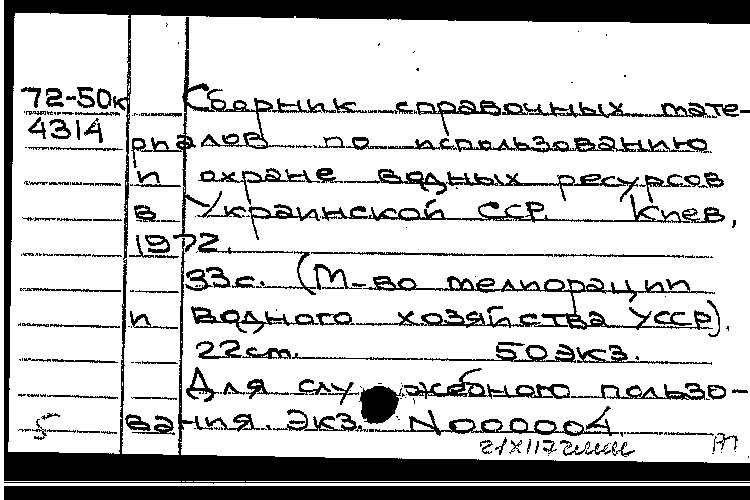 72-50к Сборник справочных мате-
4314 риалов по использованию
и охране водных ресурсов
в Украинской ССР. Киев,
1972.
33с. (М-во мелиорации
и водного хозяйства УССР).
22см. 50экз.
Для служебного пользо-
вания. Экз. N000004.
5